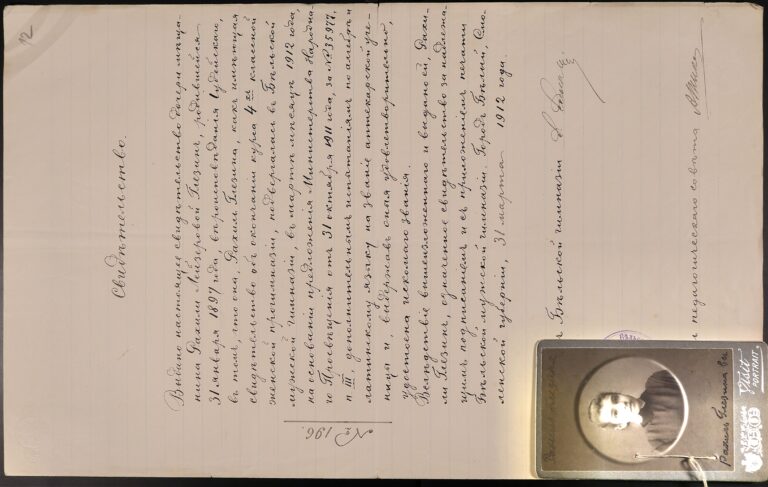 12
Свидѣтельство.
Выдано настоящее свидѣтельство дочери мѣща-
нина Рахили Лейзеровой Глезинъ, родившейся
31 января 1897 года, вѣроисповѣданія Іудейскаго,
въ томъ, что она, Рахиль Глезина, какъ имѣющая
свидѣтельство объ окончаніи курса 4хъ классной
женской прогимназіи, подвергалась въ Бѣльской
мужской гимназіи, въ мартѣ мѣсяцѣ 1912 года,
на основаніи предложенія Министерства Народна-
го Просвѣщенія отъ 31 октября 1911 года, за № 35977,
п. III, дополнительнымъ испытаніямъ по алгебрѣ и
латинскому языку на званіе аптекарской уче-
ницы и, выдержавъ оныя удовлетворительно,
удостоена искомаго званія.
Вслѣдствіе вышеизложеннаго и выдано ей, Рахи-
ли Глезинъ, означенное свидѣтельство за надлежа-
щимъ подписаніемъ и съ приложеніемъ печати
Бѣльской мужской гимназіи. Городъ Бѣлый, Смо-
ленской губерніи, 31 марта 1912 года.
№ 196.
Бѣльской гимназіи
педагогическаго совѣта
Рахиль Глезина
Visit
PORTRAIT